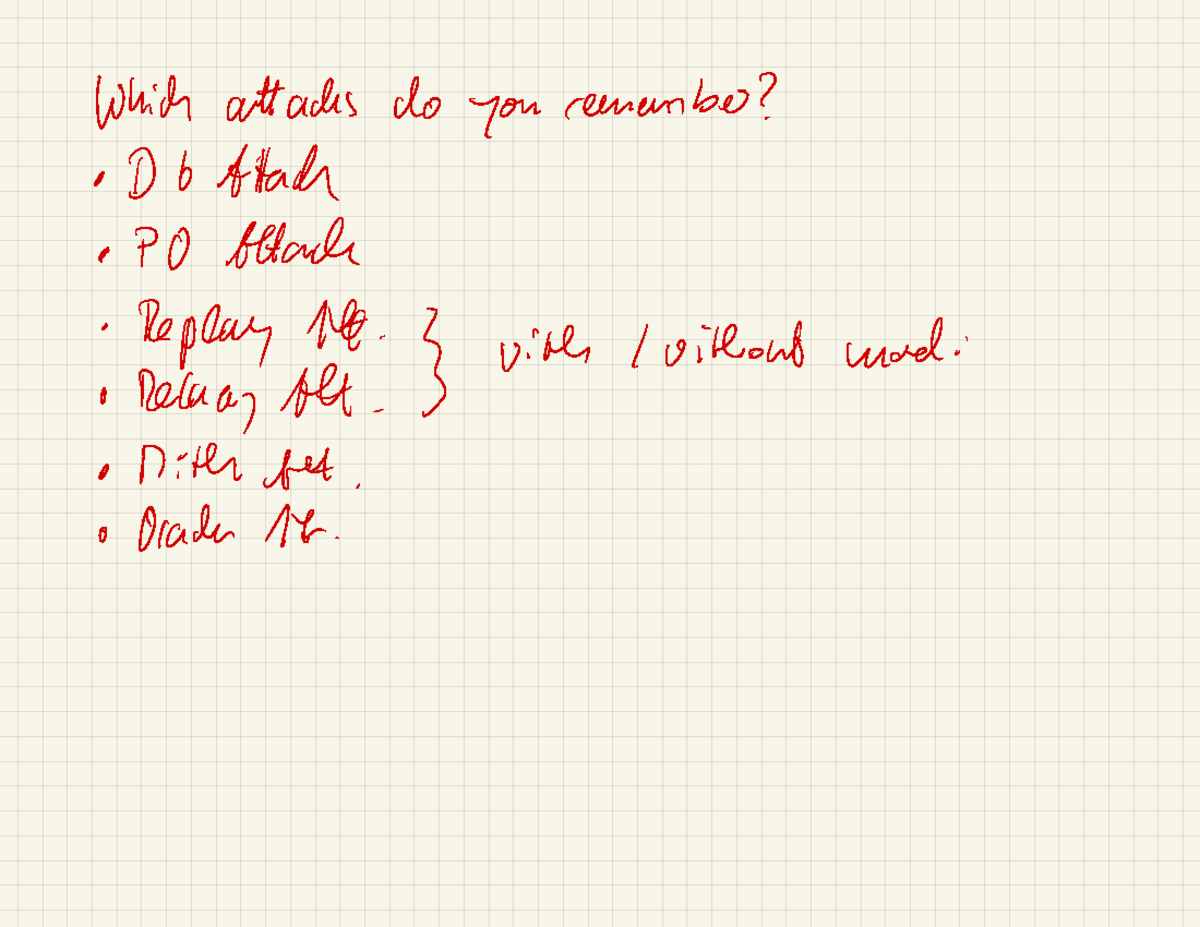 Which attacks do you remember?
• DO Attack
• PO Attack
• Replay Att.
• Delay Att. } with / without mod.
• Mith Att.
• Oracle Att.